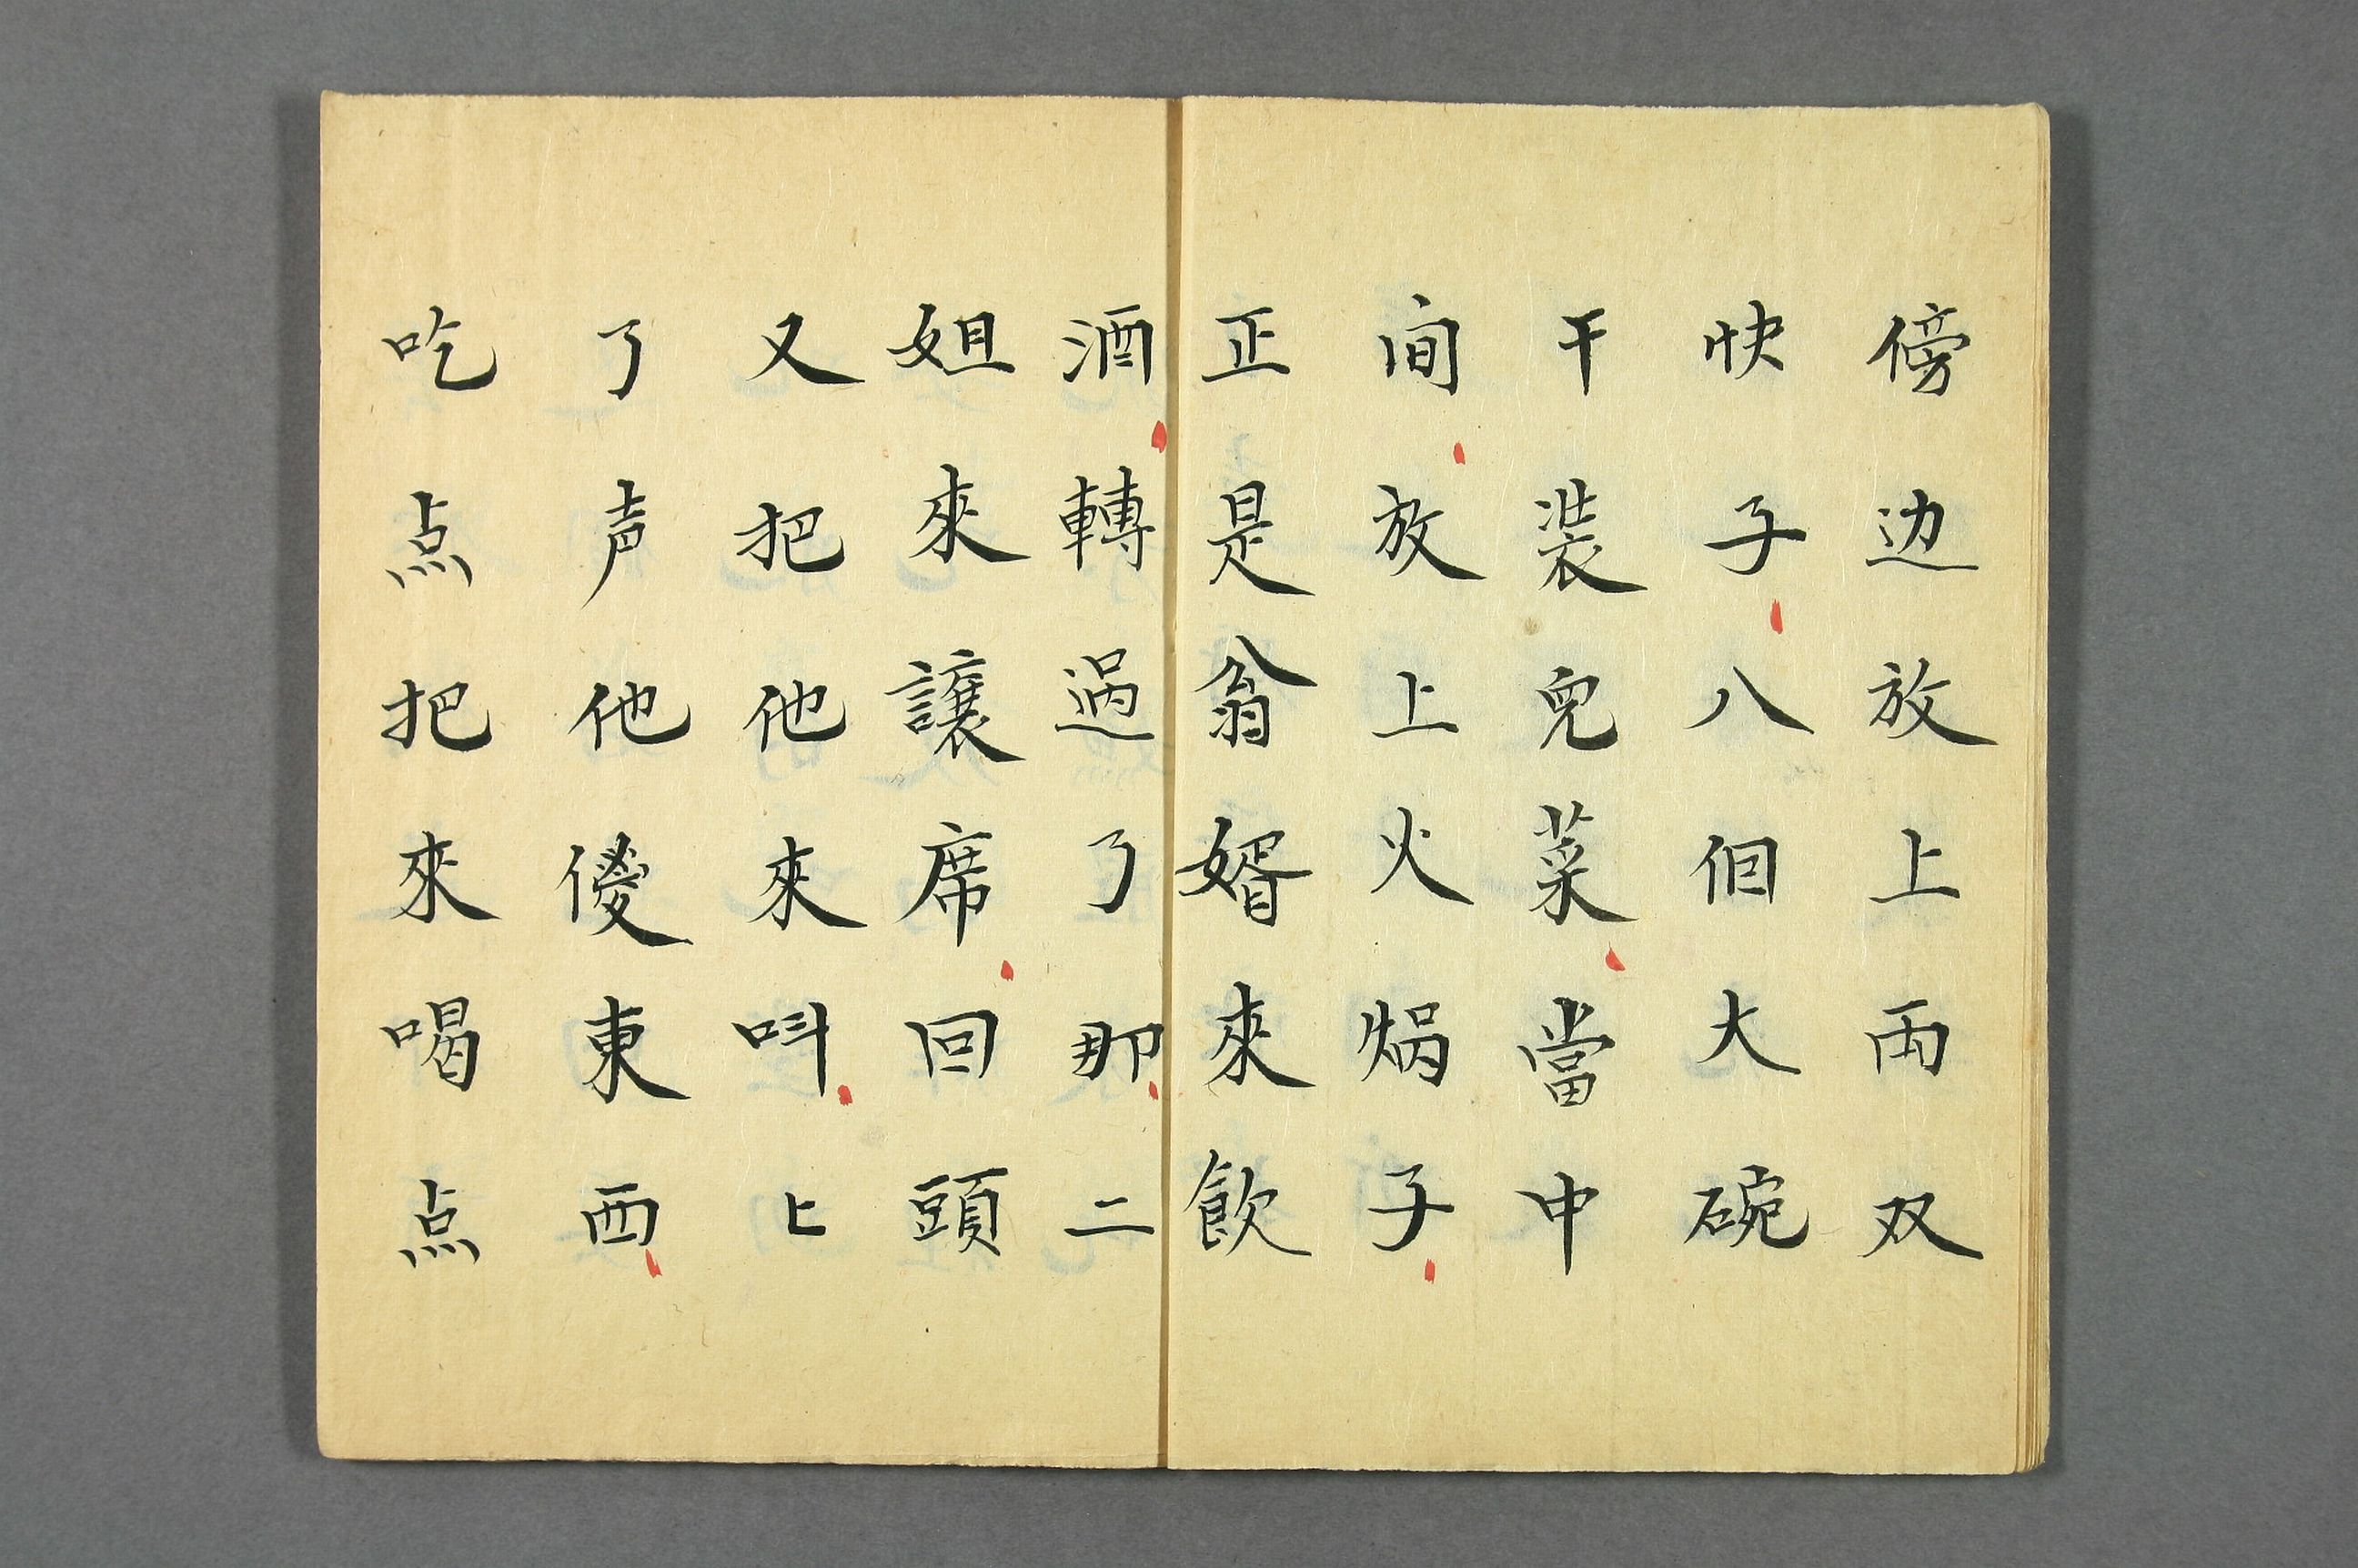 傍边放上両双
快子八佪大碗
干装兒菜當中
间放上火焗子
正是翁婿來飲
酒轉過了那二
姐來讓席回頭
又把他來呌上
了声他儍東西
吃点把來喝点